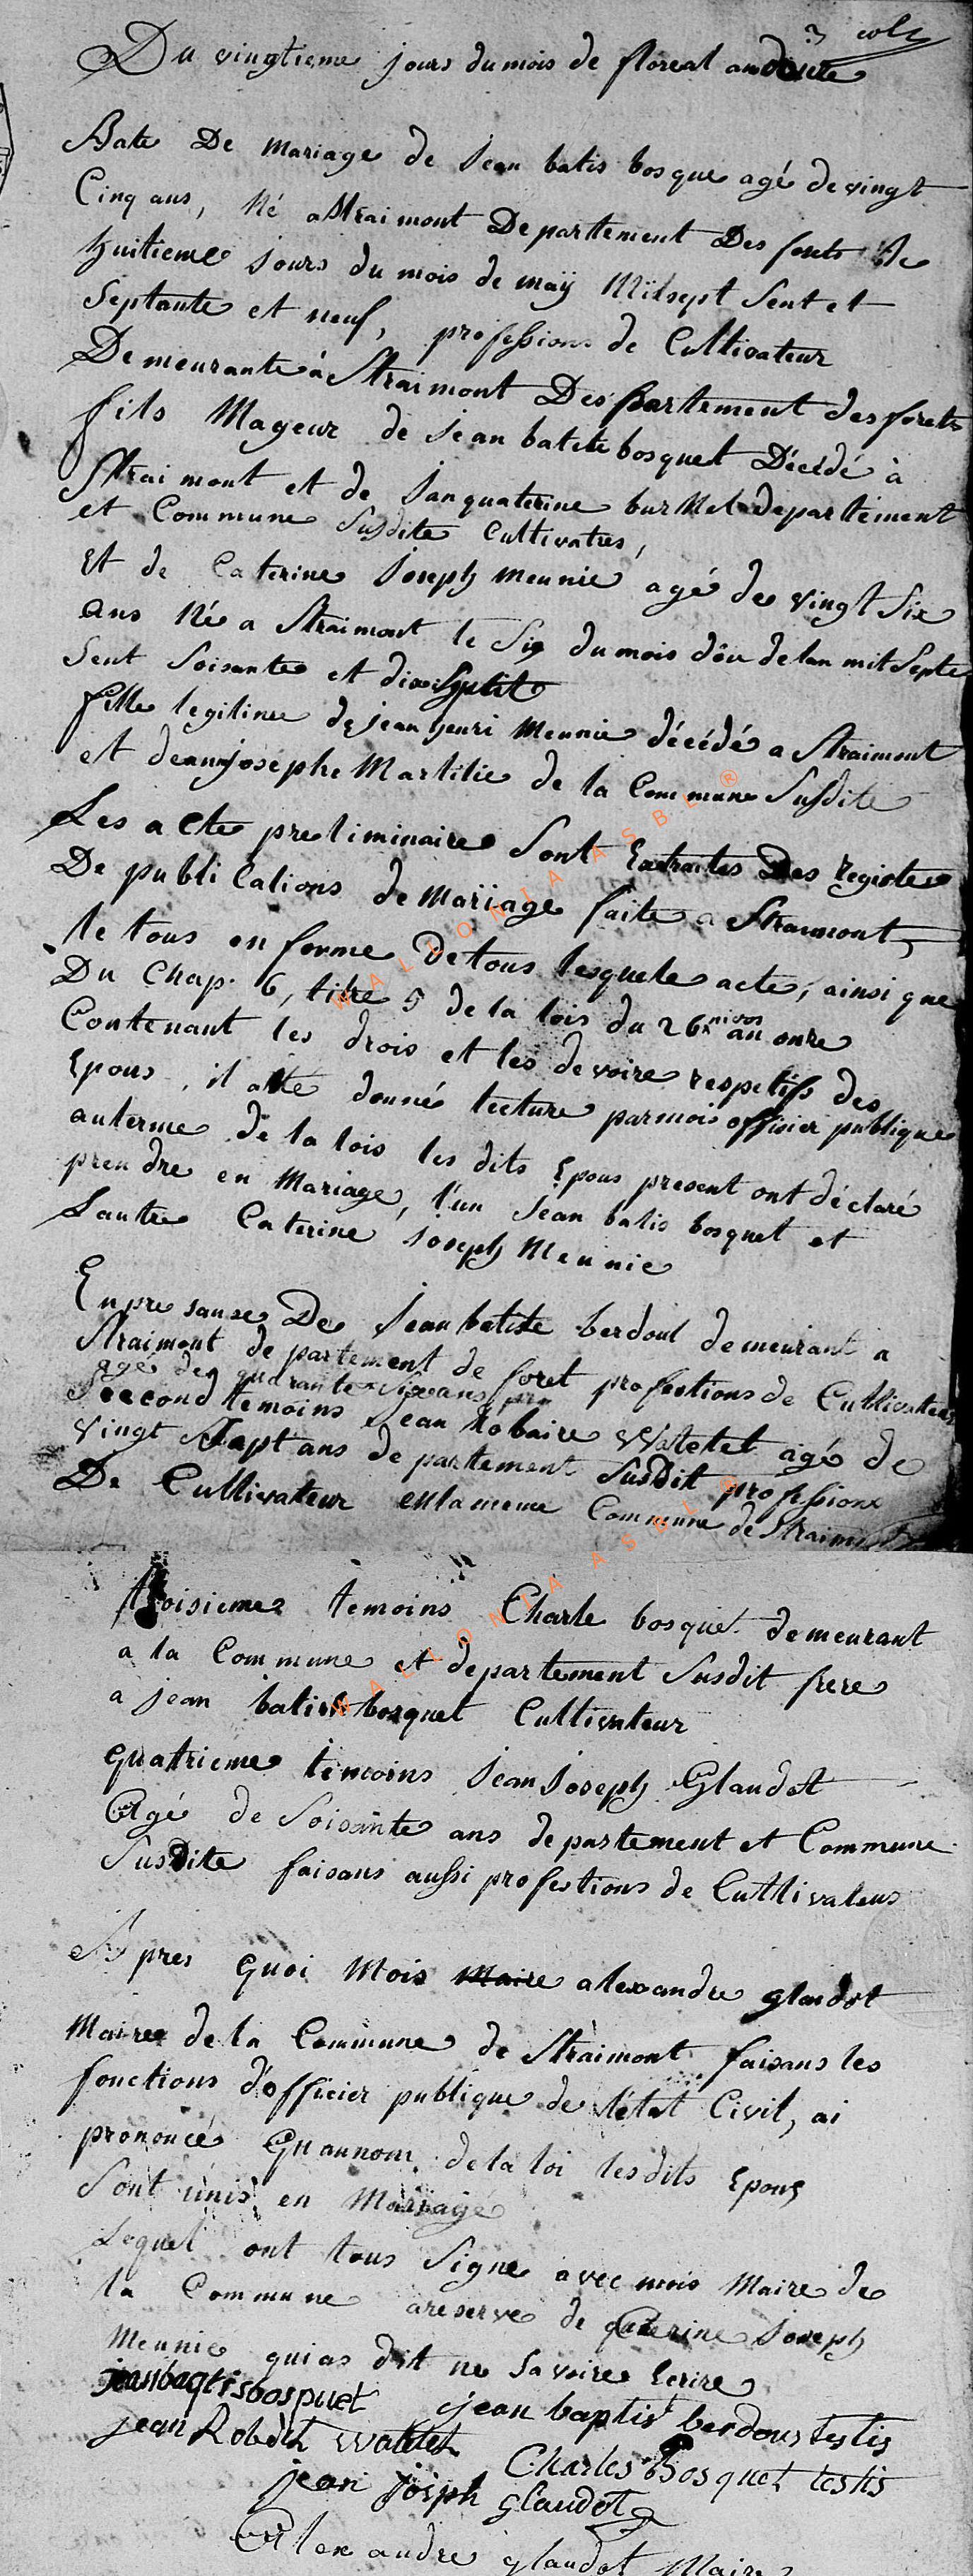 3 colz
Du vingtieme jours du mois de floreal an douze
Acte De mariage de Jean batis bosque agé de vingt
Cinq ans, Né a Straimont Departement Des forets le
huitieme Jours du mois de maÿ Mil sept Sent et
Septante et neuf, professions de Cultivateur
Demeurante á Straimont Departement des forets
fils Mageur de Jean batiste bosquet Décédé à
Straimont et de Janquaterine departement
et Commune Susdite Cultivatres,
Et de Caterine Joseph meunie agé de vingt Six
ans Né a Straimont le Six du mois dôu de lan mil Septe
Sent Soisante et dixsept
fille legitime de jean henri Meunie décédé a Straimont
et deannjosephe Martilie de la Commune Susdite
Les acte preliminaire Sont Extraites Des registe
De publications de Mariage faite a Straimont,
le tous en forme De tous lesquele acte, ainsi que
Du Chap. 6, titre 5 de la lois du 26 nivos an onze
Contenant les drois et les devoire respetifs des
Epous, il a été donné lecture par mois offisier publique
auterme de la lois les dits Epous present ont déclaré
prendre en Mariage, l'un Jean batis bosquet et
Lautre Caterine Joseph Meunie
En presanse De Jean batiste berdoul demeurant a
Straimont departement de foret profestions de Cultivateur
agé de quarante Six ans
Second temoins Jean Robaire Watelet agé de
vingt Sapt ans departement Susdit professione
De Cultivateur en la meme Commune de Straimont
troisieme temoins Charle bosquet demeurant
a la Commune et departement Susdit frere
a jean batist bosquet Cultivateur
quatrieme temoins Jean Joseph Glaudot
Agé de Soisante ans departement et Commune
Susdite faisans aussi profestions de Cultivateur
Apres quoi Mois Maire alexandre glaudot
Maire de la Commune de Straimont faisans les
fonctions d'officier publique de l'état Civil, ai
prononcé Qu au nom de la loi lesdits Epous
Sont unis en Mariage
Lequel ont tous Signe avec mois Maire de
la Commune areserve de Caterine Joseph
Meunie qui as dit ne Savoire Ecrire
jean baqtis bosquet jean baptis berdous testis
jean Robert watelet Charles Bosquet testis
jean josph glaudot
Alexandre glaudot Maire
WALLONIA ASBL ®
WALLONIA ASBL ®